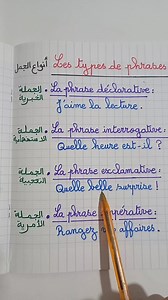 أنواع الجمل Les types de phrases
الجملة الخبرية • La phrase déclarative :
J'aime la lecture.
الجملة الاستفهامية • La phrase interrogative :
Quelle heure est-il ?
الجملة التعجبية • La phrase exclamative :
Quelle belle surprise !
الجملة الأمرية • La phrase impérative :
Rangez affaires.